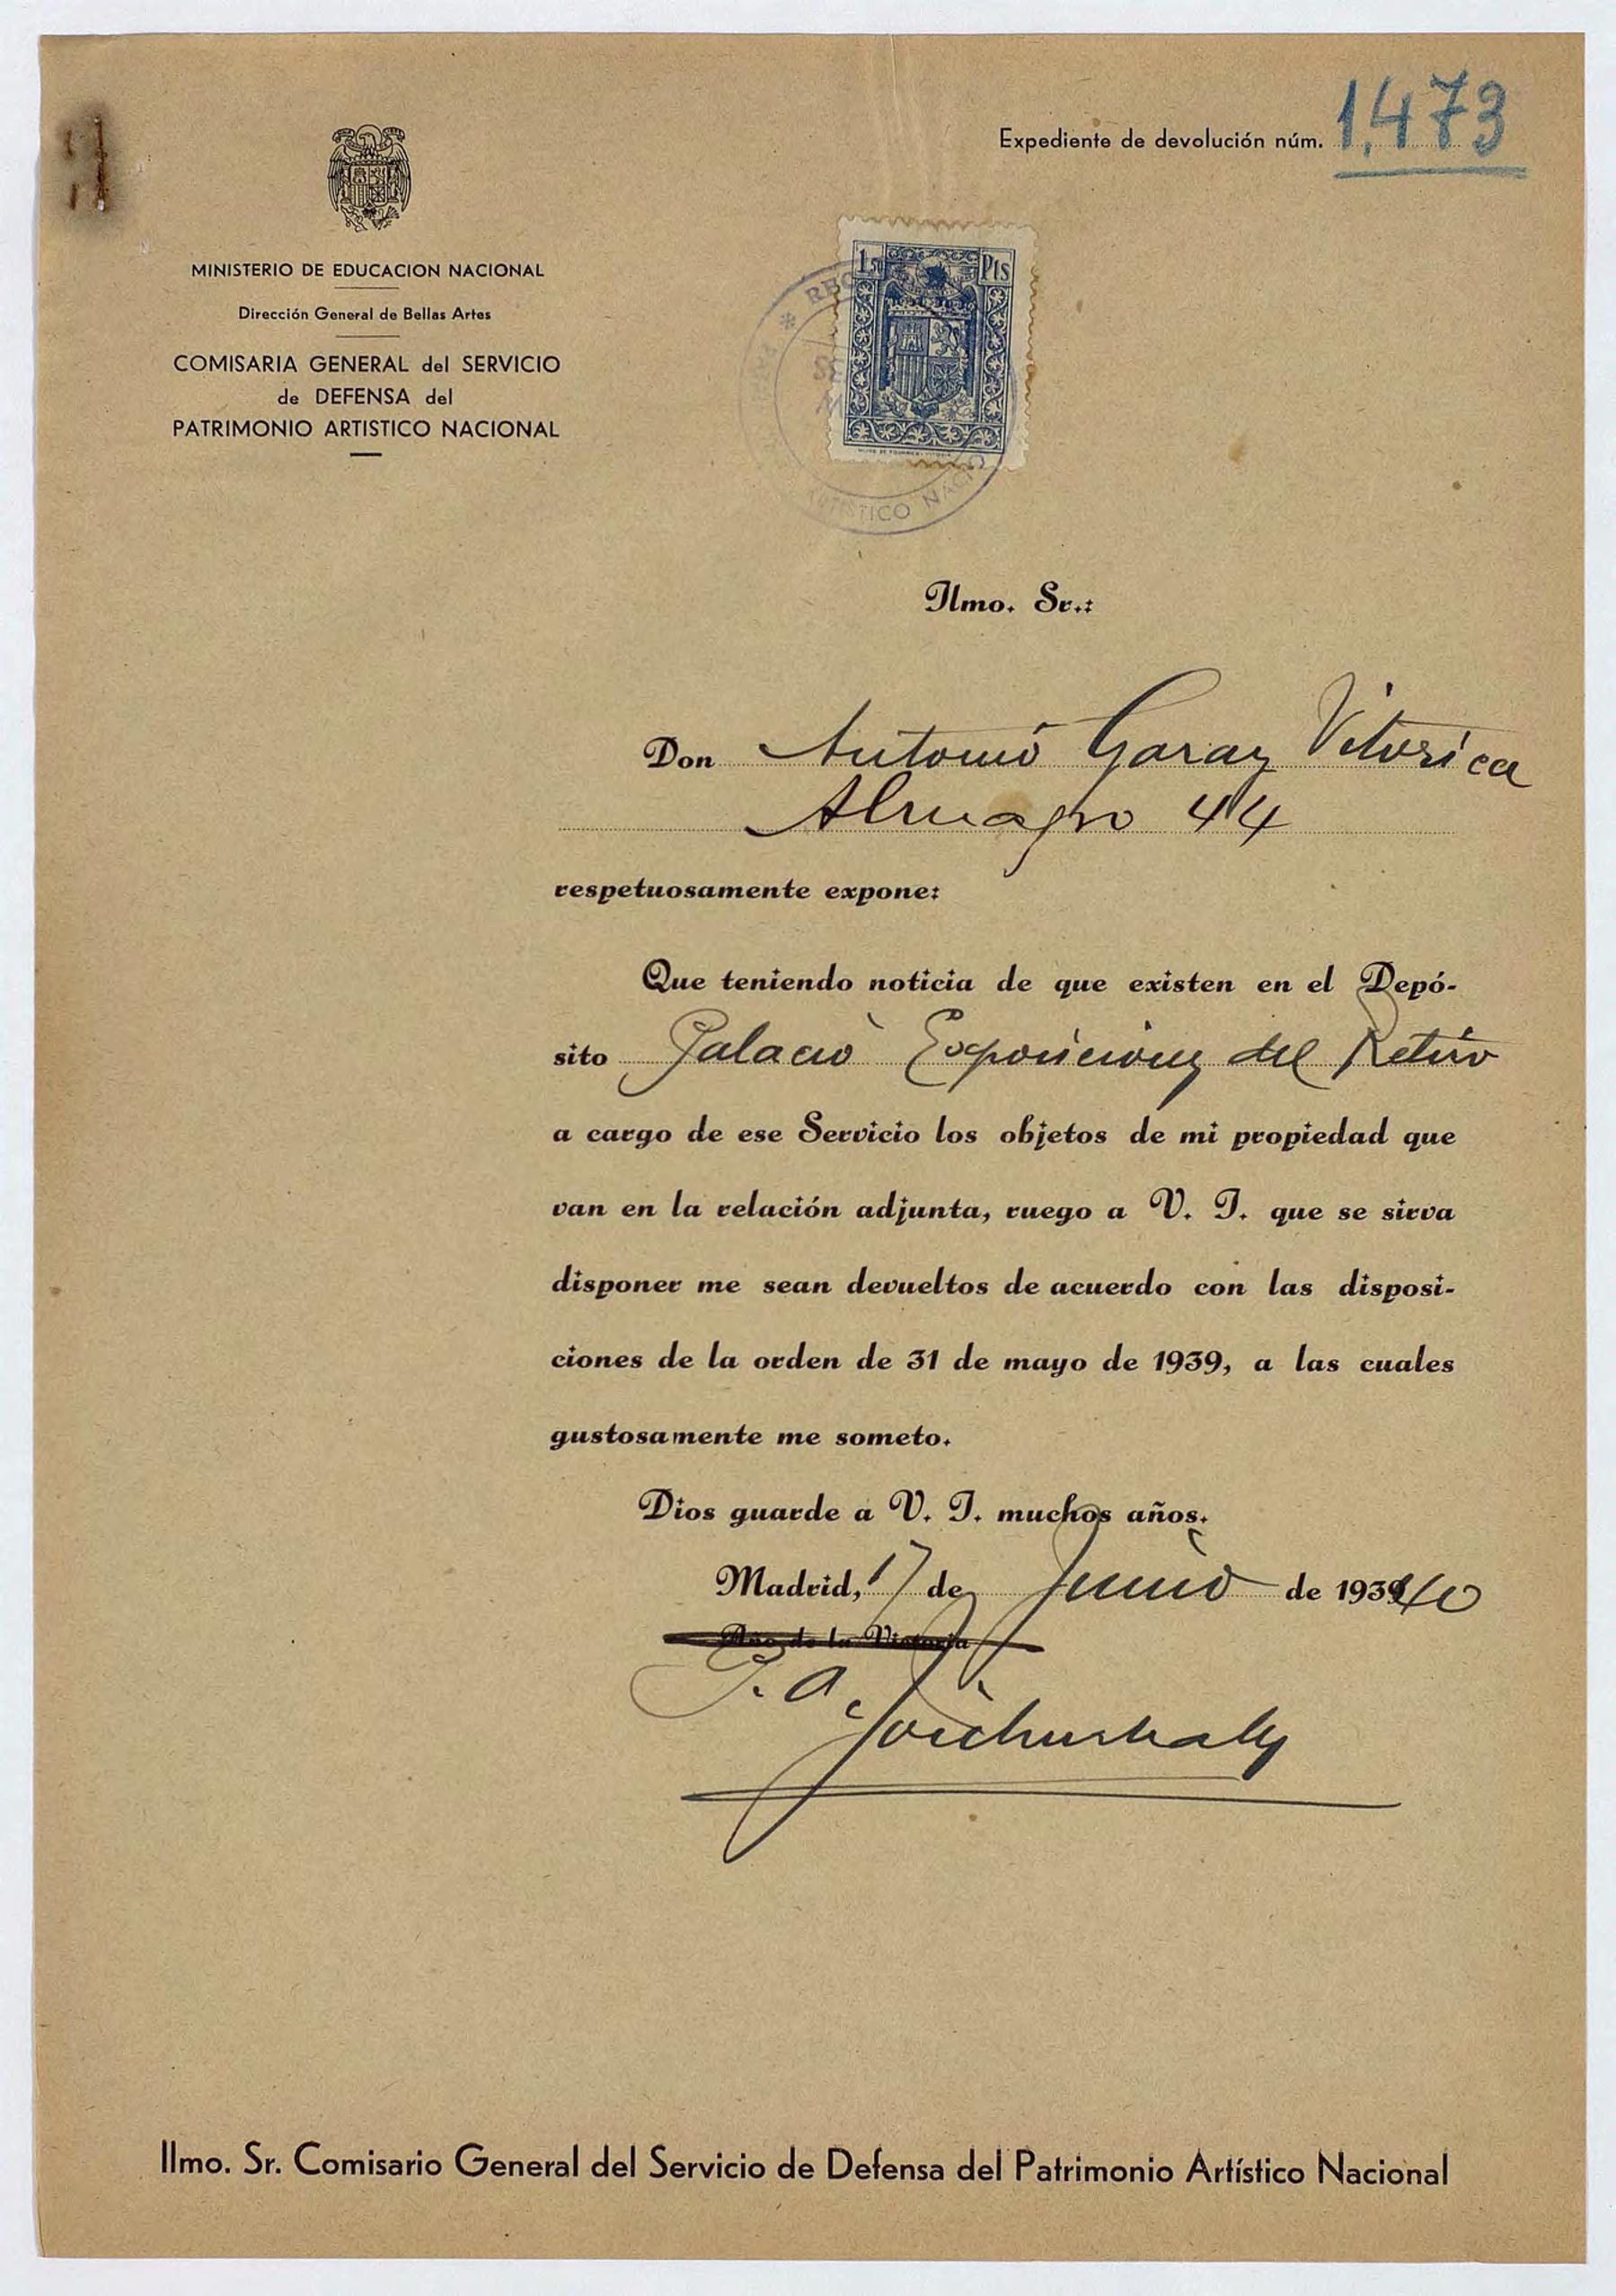 Expediente de devolución núm. 1.473
MINISTERIO DE EDUCACION NACIONAL
Dirección General de Bellas Artes
COMISARIA GENERAL del SERVICIO
de DEFENSA del
PATRIMONIO ARTISTICO NACIONAL
1,50 Pts
ARTISTICO NACIO
Ilmo. Sr.:
Don Antonio Garay Vitorica
Almagro 44
respetuosamente expone:
Que teniendo noticia de que existen en el Depó-
sito Palacio Exposiciones del Retiro
a cargo de ese Servicio los objetos de mi propiedad que
van en la relación adjunta, ruego a V. I. que se sirva
disponer me sean devueltos de acuerdo con las disposi-
ciones de la orden de 31 de mayo de 1939, a las cuales
gustosamente me someto.
Dios guarde a V. I. muchos años.
Madrid, 17 de Junio de 1939 40
Año de la Victoria
P. A.
Ilmo. Sr. Comisario General del Servicio de Defensa del Patrimonio Artístico Nacional